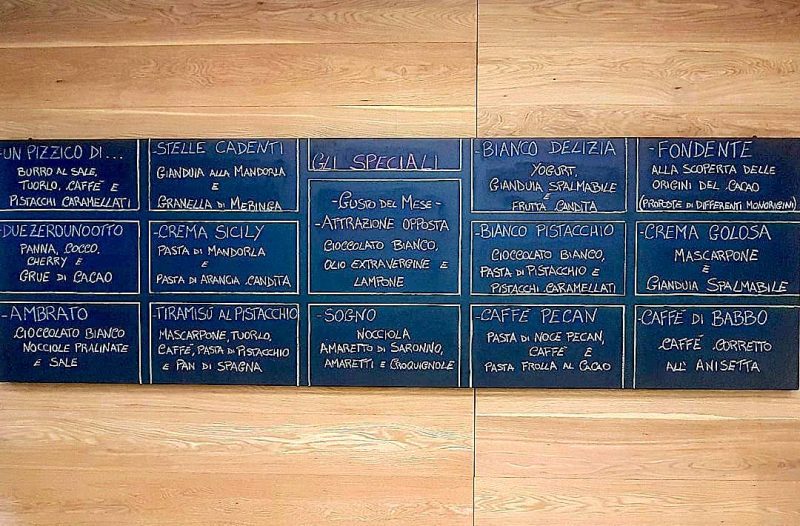 -UN PIZZICO DI...
BURRO AL SALE,
TUORLO, CAFFÈ E
PISTACCHI CARAMELLATI
-STELLE CADENTI
GIANDUIA ALLA MANDORLA
E
GRANELLA DI MERINGA
GLI SPECIALI
-BIANCO DELIZIA
YOGURT,
GIANDUIA SPALMABILE
E
FRUTTA CANDITA
-FONDENTE
ALLA SCOPERTA DELLE
ORIGINI DEL CACAO
(PROPOSTE DI DIFFERENTI MONORIGINI)
-DUEZEROUNOOTTO
PANNA, COCCO,
CHERRY E
GRUE DI CACAO
-CREMA SICILY
PASTA DI MANDORLA
E
PASTA DI ARANCIA CANDITA
-GUSTO DEL MESE-
-ATTRAZIONE OPPOSTA
CIOCCOLATO BIANCO,
OLIO EXTRAVERGINE E
LAMPONE
-BIANCO PISTACCHIO
CIOCCOLATO BIANCO,
PASTA DI PISTACCHIO E
PISTACCHI CARAMELLATI
-CREMA GOLOSA
MASCARPONE
E
GIANDUIA SPALMABILE
-AMBRATO
CIOCCOLATO BIANCO
NOCCIOLE PRALINATE
E SALE
-TIRAMISÚ AL PISTACCHIO
MASCARPONE, TUORLO,
CAFFÈ, PASTA DI PISTACCHIO
E PAN DI SPAGNA
-SOGNO
NOCCIOLA
AMARETTO DI SARONNO,
AMARETTI E CROQUIGNOLE
-CAFFÈ PECAN
PASTA DI NOCE PECAN,
CAFFÈ E
PASTA FROLLA AL CACAO
-CAFFÈ DI BABBO
CAFFÈ CORRETTO
ALL' ANISETTA